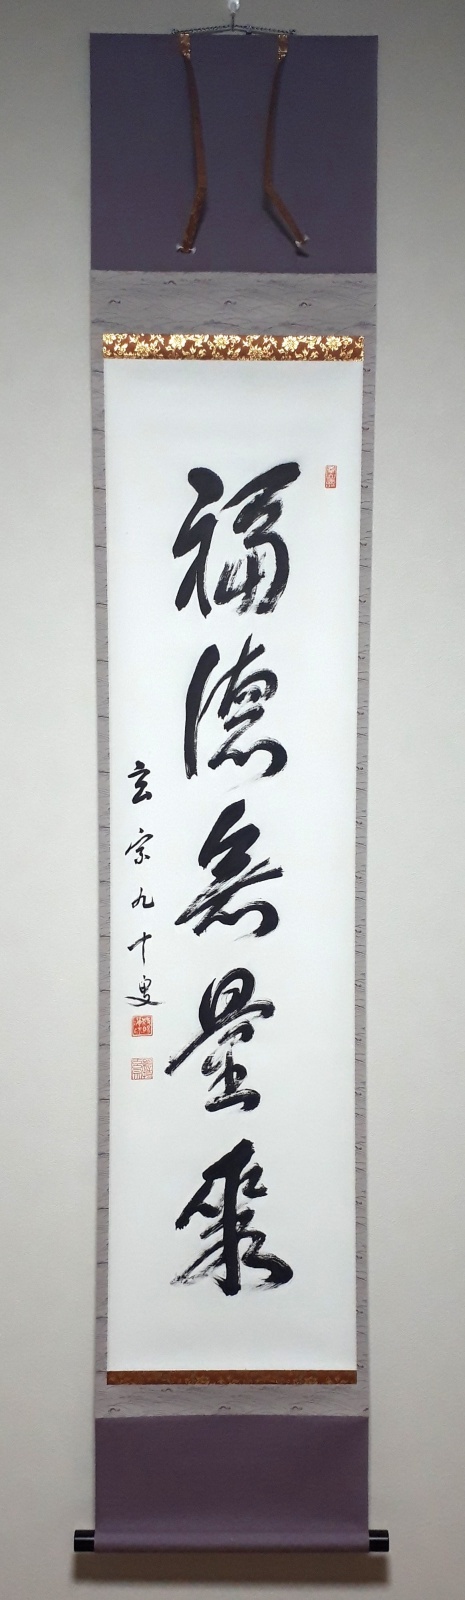 福德無量聚
玄宗九十叟